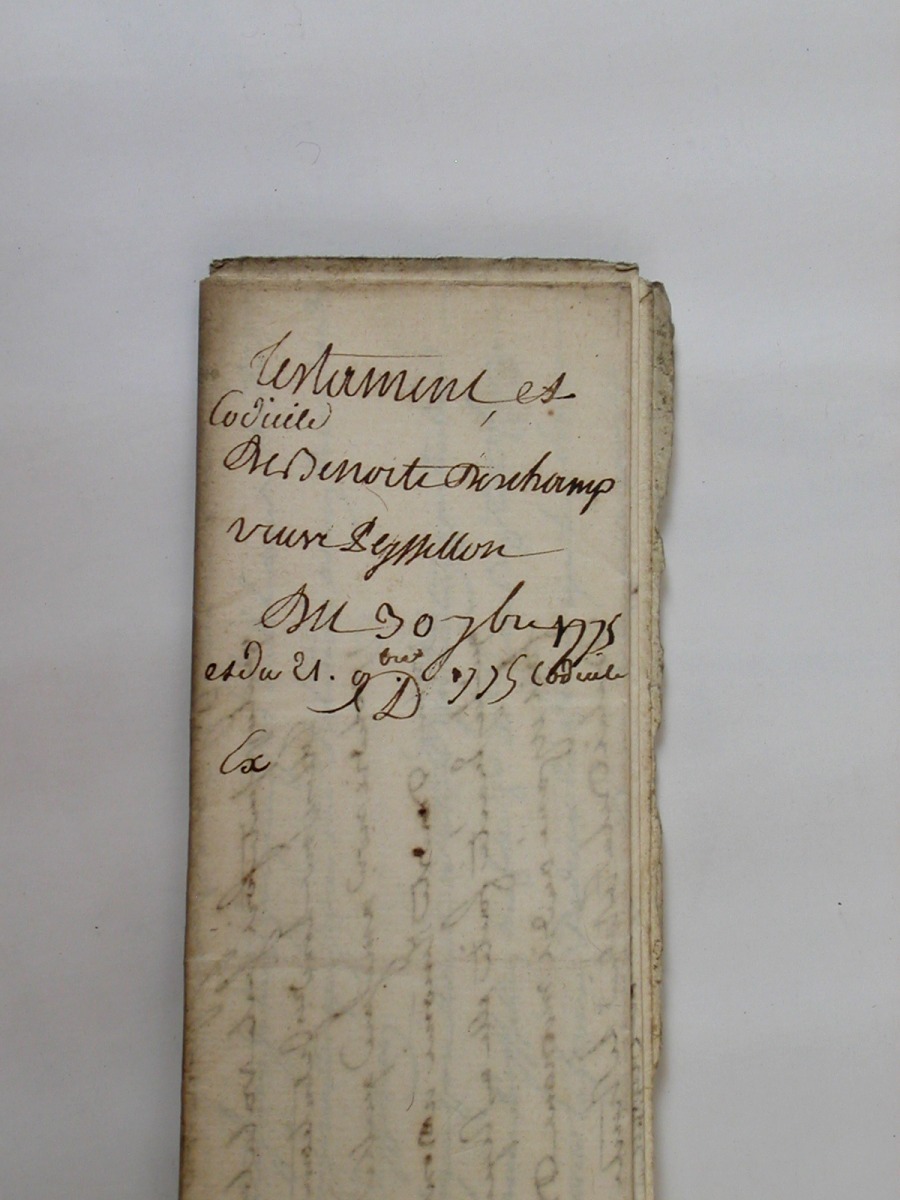 Testament et
Codicile
De Benoite Deschamp
veuve Peyssellon
Du 30 7bre 1775
et du 21. 9bre 1775 Codicile
D
Ex